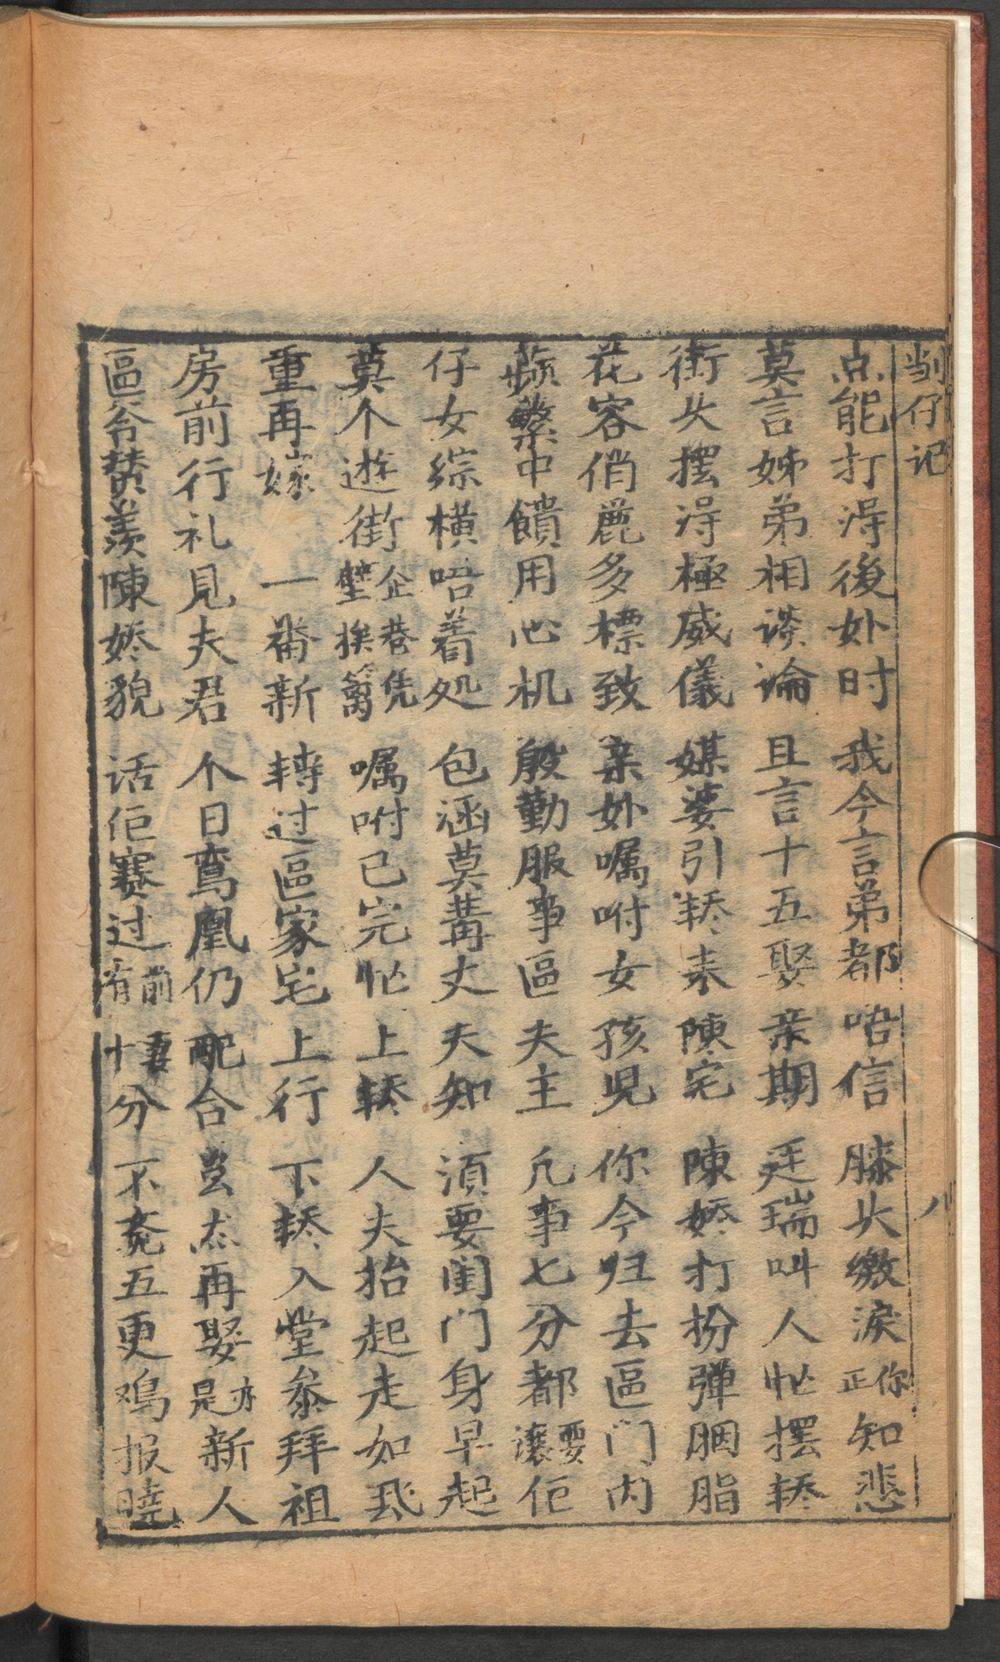 刣仔记 八
点能打淂後外时 我今言弟都唔信 膝头缴淚正你知悲
莫言姊弟相谈論 且言十五娶亲期 廷瑞叫人忙摆轿
街头摆淂極威儀 媒婆引轿来陳宅 陳娇打扮彈胭脂
花容俏麗多標致 亲外嘱咐女孩児 你今归去區门内
蘋蘩中饋用心机 般勤服事區夫主 凢事七分都讓要佢
仔女綜橫唔着处 包涵莫萬丈夫知 湏要闺门身早起
莫个逰街企巷凭壁挨篱 嘱咐已完忙上轿 人夫抬起走如飛
重再嫁 一番新 轉过區家宅上行 下轿入堂叅拜祖
房前行礼見夫君 个日鸾凰仍配合 虽点再娶亦是新人
區爷賛羡陳娇貌 话佢赛过前有妻十分 不觉五更鸡报曉